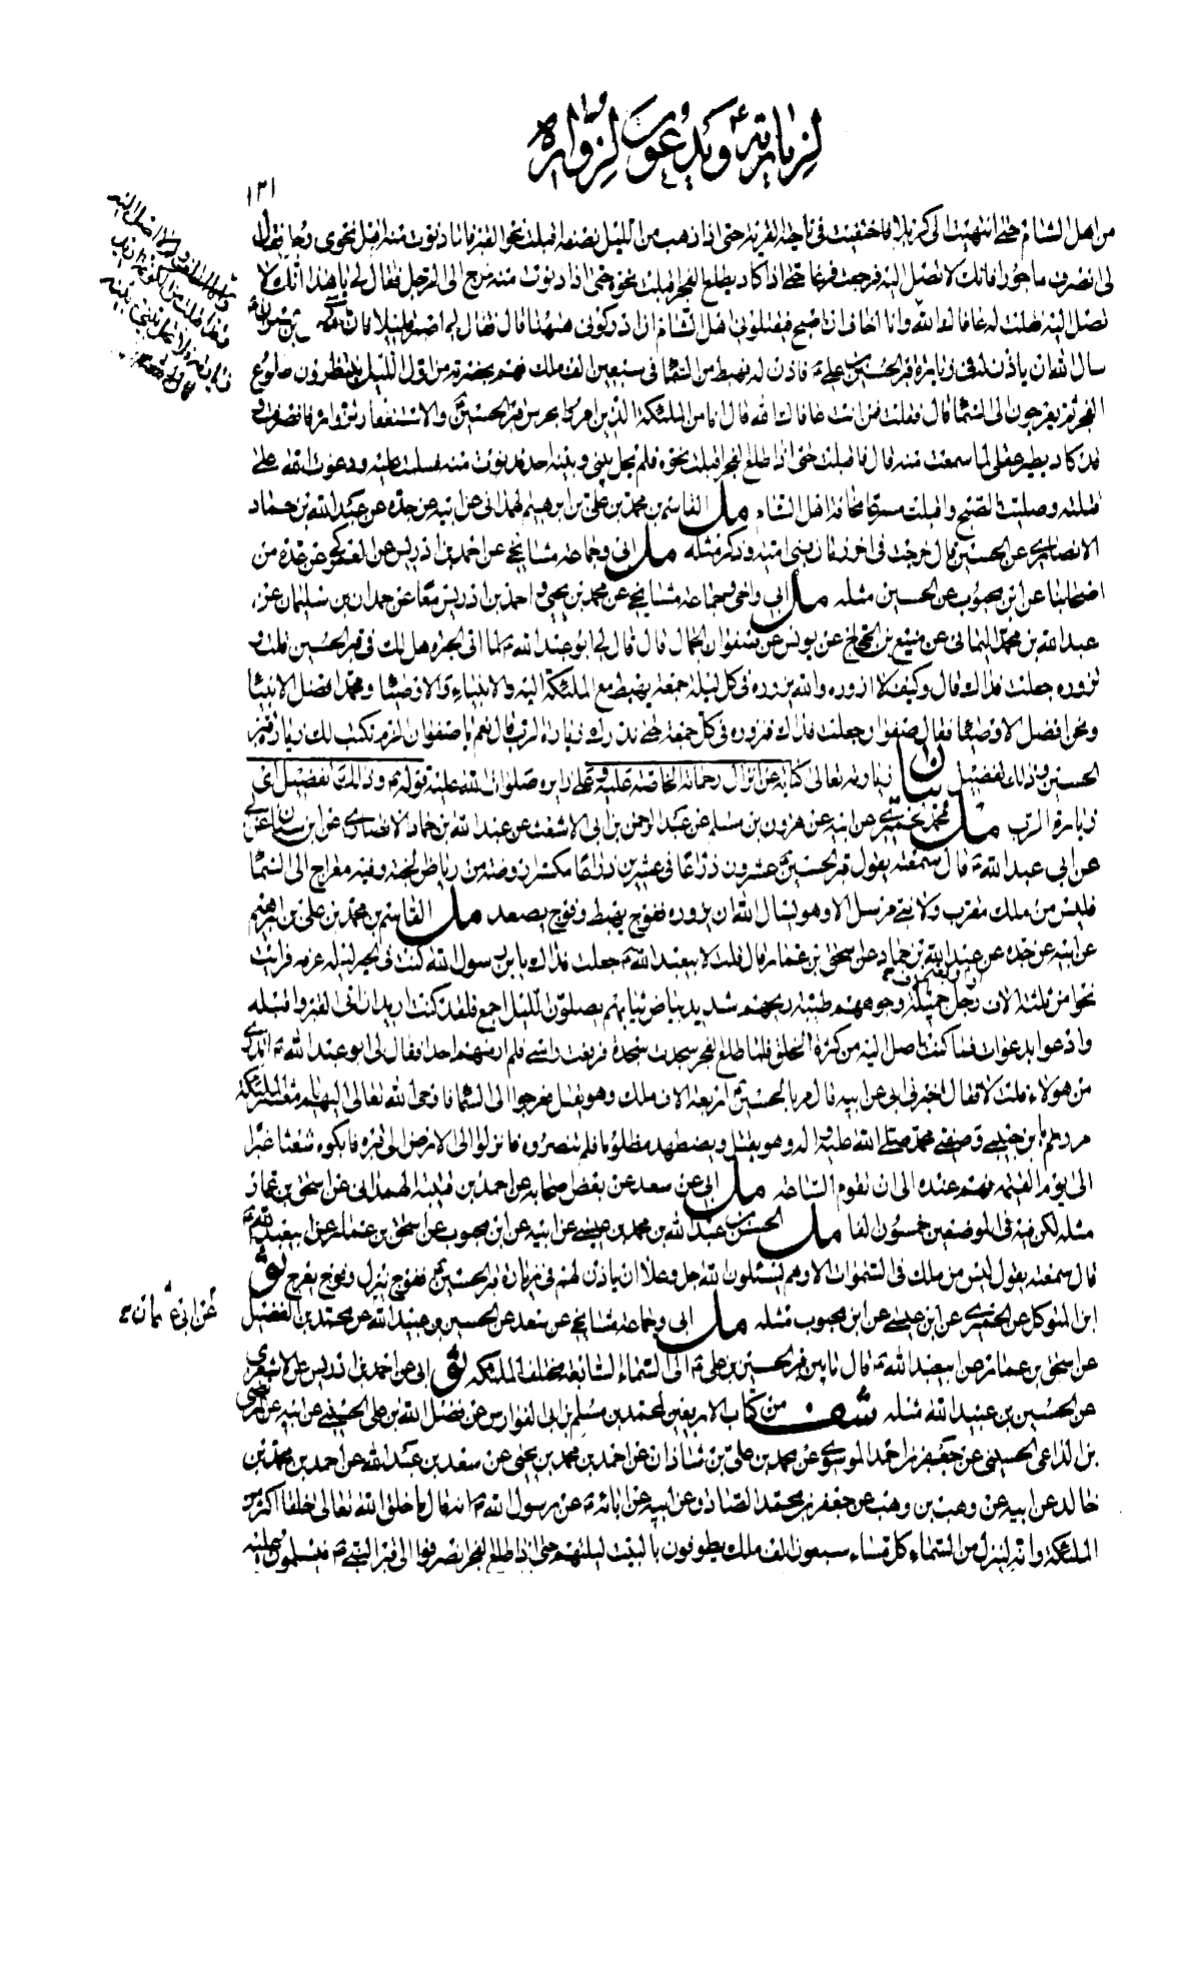 لزيارته ع ويدعون لزواره
١٣١
من اهل الشام حتى انتهيت الى كربلا فاختفيت في ناحية القرية حتى اذا ذهب من الليل نصفه اقبلت نحو القبر فلما دنوت منه اقبل نحوي رجل فقال
لي انصرف ماجورا فانك لا تصل اليه فرجعت فزعا حتى اذا كاد يطلع الفجر اقبلت نحوه حتى اذا دنوت منه خرج الى الرجل فقال لي يا هذا انك لا
تصل اليه فقلت له عافاك الله وانا اخاف ان اصبح فيقتلوني اهل الشام ان ادركوني ههنا قال فقال لي اصبر قليلا فان موسى بن عمران
سال الله ان ياذن له في زيارة قبر الحسين بن علي ع فاذن له فهبط من السماء في سبعين الف ملك فهم بحضرته من اول الليل ينتظرون طلوع
الفجر ثم يعرجون الى السماء قال فقلت فمن انت عافاك الله قال انا من الملئكة الذين امروا بحرس قبر الحسين ع والاستغفار لزواره فانصرفت و
قد كاد يطير عقلي لما سمعت منه قال فاقبلت حتى اذا طلع الفجر اقبلت نحوه فلم يحل بيني وبينه احد فدنوت منه فسلمت عليه ودعوت الله على
قتلته وصليت الصبح واقبلت مسرعا مخافة اهل الشام مل القاسم بن محمد بن علي بن ابرهيم الهمداني عن ابيه عن جده عن عبد الله بن حماد
الانصاري عن الحسين قال خرجت في اخر زمان بني امية وذكر مثله مل ابي وجماعة مشايخي عن احمد بن ادريس عن العمركي عن عدة من
اصحابنا عن ابن محبوب عن الحسين مثله مل ابي واخي وجماعة مشايخي عن محمد بن يحيى واحمد بن ادريس معا عن حمدان بن سليمان عن
عبد الله بن محمد اليماني عن منيع بن الحجاج عن يونس عن صفوان الجمال قال قال لي ابو عبد الله ع لما اتى الحيرة هل لك في قبر الحسين قلت و
تزوره جعلت فداك قال وكيف لا ازوره والله يزوره في كل ليلة جمعة يهبط مع الملئكة اليه والانبياء والاوصيا ومحمد افضل الانبيا
ونحن افضل الاوصيا فقال صفوان جعلت فداك فنزوره في كل جمعة حتى ندرك زيارة الرب قال نعم يا صفوان الزم تكتب لك زيارة قبر
الحسين وذلك تفضيل بيان زيارته تعالى كناية عن انزال رحماته الخاصة عليه وعلى زايره صلوات الله عليه قوله ع وذلك تفضيل اي
زيارة الرب مل محمد الحميري عن ابيه عن هرون بن مسلم عن عبد الرحمن بن ابي الاشعث عن عبد الله بن حماد الانصاري عن ابن سنان
عن ابي عبد الله ع قال سمعته يقول قبر الحسين ع عشرون ذراعا في عشرين ذراعا مكسرا روضة من رياض الجنة وفيه معراج الى السما
فليس من ملك مقرب ولا نبي مرسل الا وهو يسال الله ان يزوره ففوج يهبط وفوج يصعد مل القاسم بن محمد بن علي بن ابرهيم
عن ابيه عن جده عن عبد الله بن حماد عن اسحق بن عمار قال قلت لابيعبد الله ع جعلت فداك يا بن رسول الله كنت في الحير ليلة عرفة فرايت
نحوا من ثلثة الاف رجل جميلة وجوههم طيبة ريحهم شديد بياض ثيابهم يصلون الليل اجمع فلقد كنت اريد ان اتي القبر واقبله
وادعو بدعوات فما كنت اصل اليه من كثرة الخلق فلما طلع الفجر سجدت سجدة فرفعت راسي فلم ار منهم احدا فقال لي ابو عبد الله ع اتدري
من هؤلاء قلت لا فقال اخبرني ابي عن ابيه قال مر بالحسين ع اربعة الاف ملك وهو يقتل فعرجوا الى السما فاوحى الله تعالى اليهم يا معشر الملئكة
مررتم بابن حبيبي وصفيي محمد صلى الله عليه واله وهو يقتل ويضطهد مظلوما فلم تنصروه فانزلوا الى الارض الى قبره فابكوه شعثا غبرا
الى يوم القيمة فهم عنده الى ان تقوم الساعة مل ابي عن سعد عن بعض اصحابه عن احمد بن قتيبة الهمداني عن اسحق بن عمار
مثله لكن فيه في الموضعين خمسون الفا مل الحسن بن عبد الله بن محمد بن عيسى عن ابيه عن ابن محبوب عن اسحق بن عمار عن ابيعبد الله ع
قال سمعته يقول ليس من ملك في السموات الا وهم يسئلون الله جل وعلا ان ياذن لهم في زيارة قبر الحسين ع ففوج ينزل وفوج يعرج ثو
ابن المتوكل عن الحميري عن ابن عيسى عن ابن محبوب مثله مل ابي وجماعة مشايخي عن سعد عن الحسين بن عبيد الله عن محمد بن الفضيل
عن اسحق بن عمار عن ابيعبد الله ع قال ما بين قبر الحسين بن علي ع الى السماء السابعة مختلف الملئكة ثو ابي عن احمد بن ادريس عن الاشعري
عن الحسين بن عبيد الله مثله شف من كتاب الاربعين لمحمد بن مسلم بن ابي الفوارس عن فضل الله بن علي الحسيني عن ابيه عن المرتضى
بن الداعي الحسيني عن جعفر بن احمد الموسوي عن محمد بن علي بن شاذان عن احمد بن محمد بن يحيى عن سعد بن عبد الله عن احمد بن محمد بن
خالد عن ابيه عن وهب بن وهب عن جعفر بن محمد الصادق عن ابيه عن ابائه ع عن رسول الله ص انه قال ما خلق الله تعالى خلقا اكثر من
الملئكة وانه لينزل من السماء كل مساء سبعون الف ملك يطوفون بالبيت ليلتهم حتى اذا طلع الفجر انصرفوا الى قبر النبي ص فيسلمون عليه